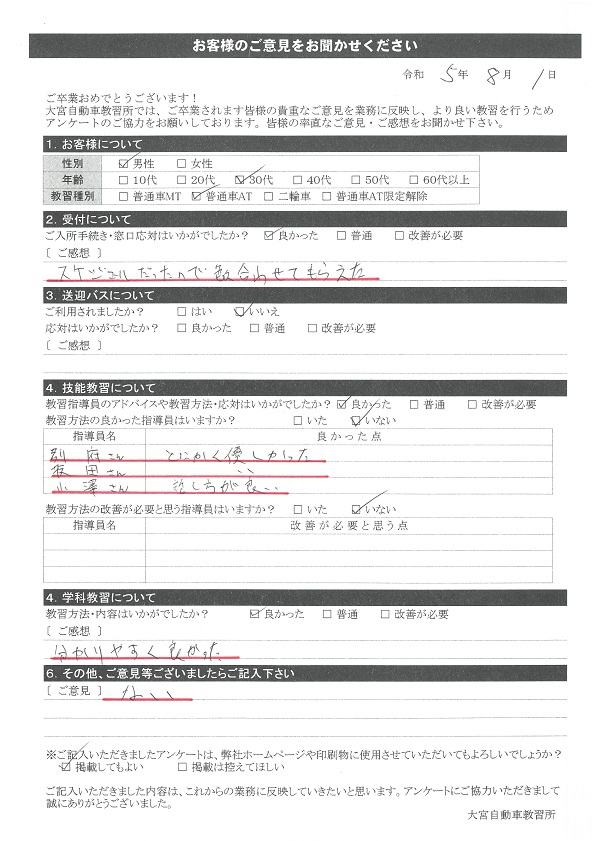 お客様のご意見をお聞かせください
令和 5年 8月 1日
ご卒業おめでとうございます！
大宮自動車教習所では、ご卒業されます皆様の貴重なご意見を業務に反映し、より良い教習を行うため
アンケートのご協力をお願いしております。皆様の率直なご意見・ご感想をお聞かせ下さい。
1. お客様について
性別 ☑男性 □女性
年齢 □10代 □20代 ☑30代 □40代 □50代 □60代以上
教習種別 □普通車MT ☑普通車AT □二輪車 □普通車AT限定解除
2. 受付について
ご入所手続き・窓口応対はいかがでしたか？ ☑良かった □普通 □改善が必要
［ ご感想 ］
スケジュールだったので 合わせてもらえた
3. 送迎バスについて
ご利用されましたか？ □はい ☑いいえ
応対はいかがでしたか？ □良かった □普通 □改善が必要
［ ご感想 ］
4. 技能教習について
教習指導員のアドバイスや教習方法・応対はいかがでしたか？ ☑良かった □普通 □改善が必要
教習方法の良かった指導員はいますか？ □いた ☑いない
指導員名 良かった点
別府さん とにかく優しかった
さん 〃
小澤さん 話し方が良い
教習方法の改善が必要と思う指導員はいますか？ □いた ☑いない
指導員名 改善が必要と思う点
4. 学科教習について
教習方法・内容はいかがでしたか？ ☑良かった □普通 □改善が必要
［ ご感想 ］
分かりやすく良かった
6. その他、ご意見等ございましたらご記入下さい
［ ご意見 ］ ない
※ご記入いただきましたアンケートは、弊社ホームページや印刷物に使用させていただいてもよろしいでしょうか？
☑掲載してもよい □掲載は控えてほしい
ご記入いただきました内容は、これからの業務に反映していきたいと思います。アンケートにご協力いただきまして
誠にありがとうございました。
大宮自動車教習所